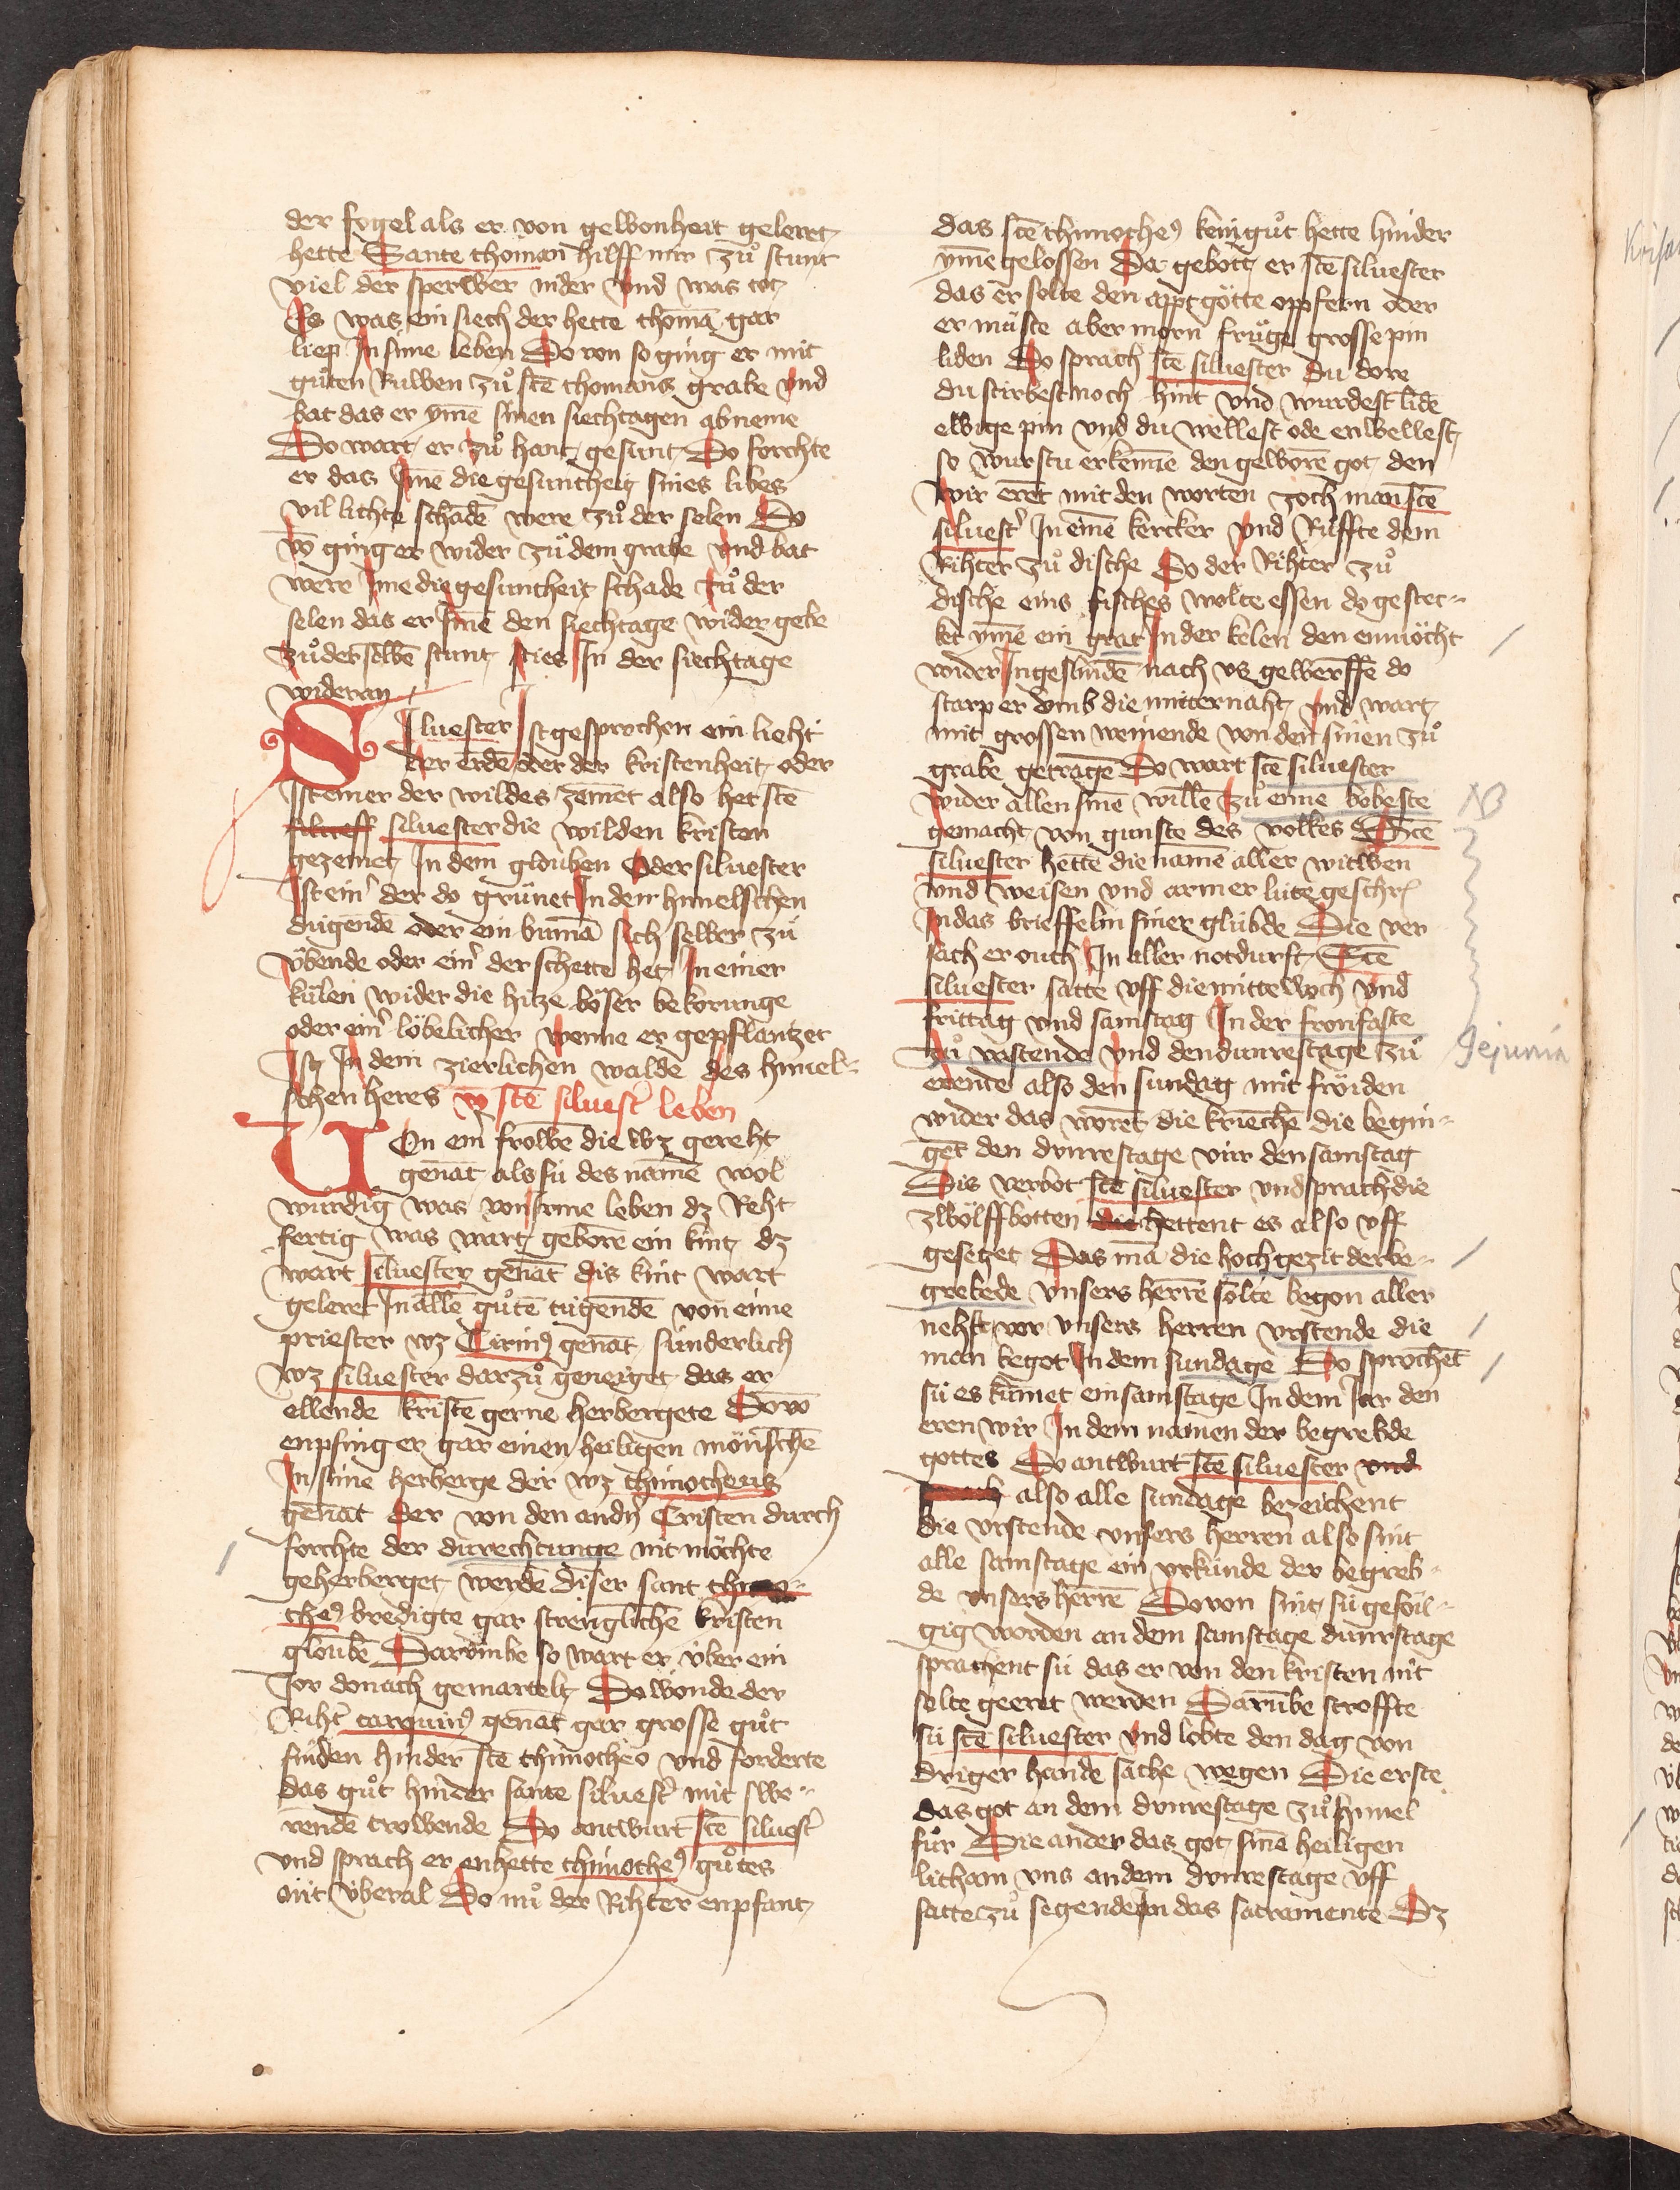 der fogel als er von gewonheit geleret
hette Sante thoman hilff mir zuͦ stunt
viel der sperwer nider vnd was tot
Es was ein siech der hette thomā gar
liep In sime leben Do von so ging er mit
guͦten Ruwen zuͦ stē thomans grabe vnd
bat das er ymē sinen siechtagen abneme
Do wart er zuͦ hant gesunt Do forchte
er das Jmē die gesuntheit sines libes
vil lichte schadē were zuͦ der selen Do
vō ging er wider zuͦ dem grabe vnd bat
were Jme die gesuntheit schade zuͦ der
selen das er Jmē den siechtage wider gebe
zuͦ der selbē stunt sties In der siechtage
wideran
Siluester Ist gesprochen ein lieht
der erdē oder der kristenheit oder
Ist einer der wildes zemet also het stē
siluest siluester die wilden kristen
gezemet In dem glouben Oder siluester
Ist ein' der do grünet In dem himelschen
dugende oder ein bumā sich selber zü
übende oder ein' der schette het In einer
külen wider die hitze böser bekorunge
oder ein' löbelicher wenne er gepflantzet
Ist In dem zierlichen walde des himel-
schen heres vō stē siluest' leben
VOn ein' frowē die wz gereht
genāt als sü des namē wol
wurdig was von irme leben dz Reht
fertig was wart geborē ein kint dz
wart siluester genāt dis kint wart
geleret In allē guͦtē tugendē von eime
priester wz Cirinꝰ genāt sunderlich
wz siluester darzuͦ geneiget das er
ellende kristē gerne herbergete Dovō
enpfing er gar einen heiligen mönschē
In sine herberge der wz thimotheus
genāt der von den andn̄ Cristen durch
forchte der durechtunge nit möchte
geherberget werdē diser sant thimo-
theꝰ bredigte gar strenglichē kristen
gloubē Darūmbe so wart er über ein
Jor donach gemartelt Do wonde der
Riht' tarquinꝰ genāt gar grosse guͦt
finden hinder stē thimotheo vnd forderte
das guͦt hinder sante siluest' mit swe-
rendē trowende Do antwurt stē siluest'
vnd sprach er enhette thimotheꝰ guͦtes
nit überal Do nuͦ der Rihter enpfant
das stē thimotheꝰ kein guͦt hette hinder
ymē gelossen Da gebott er stē siluester
das er solte den aptgötte oppfern oder
er müste aber morn früge grosse pin
liden Do sprach stē siluester du dore
du stirbest noch hint vnd wurdest lidē
ewige pin vnd du wellest ode enwellest
so wurstu erkenne den geworē got den
wir erēt mit den worten zoch man stē
siluest' In einē kercker vnd Ruffte dem
Rihter zuͦ dische Do der Rihter zuͦ
dische eins fisches wolte essen do gestec-
ket ymē ein grat In der kelen den enmöcht
wider Ingeslindē nach vs gewerffē do
starp er vmb die mitternaht vnd wart
mit grossen weinende von den sinen zuͦ
grabe getragē Do wart stē siluester
wider allen sinē willē zuͦ eime bobeste
gemacht von gunste des volkes Stē
siluester hette die namē aller witwen
vnd weisen vnd armer lüte geschr'
In das brieffelin siner glübde Die ver
sach er ouch In aller notdurft Stē
siluester satte vff die mittewoch vnd
frittag vnd samstag In der fronfaste
zuͦ vastende vnd den dunrestage zuͦ
erende also den sundag mit fröiden
wider das worēt die kriechē die begin-
gēt den dunrestage vür den samstag
Dis verbot stē siluester vnd sprach die
zwölffbotten die hettent es also vff
gesetzet Das mā die hochgezit der be-
grebede vnsers herrē solte begon aller
nehst vor vnsers herren vrstende die
man begot In dem sundage Do sprochēt
sü es kumet ein samstage In dem Jar den
eren wir In dem namen der begrebde
gottes Do antwurt stē siluester vnd
also alle sundage bezeichent
die vrstende vnsers herren also sint
alle samstage ein vrkünde der begreb-
de vnsers herrē Dovon sint sü geföl-
gig worden an dem samstage dunrstage
sprachent sü das er von den kristen nit
solte geeret werden Darūbe stroffte
sü stē siluester vnd lobte den dag von
driger hande sache wegen Die erste
das got an dem dunrestage zuͦ himel
fuͦr Die ander das got sinē heiligen
licham vns an dem dunrestage vff
satte zuͦ segende In das sacramente Dz
NB
Jejunia